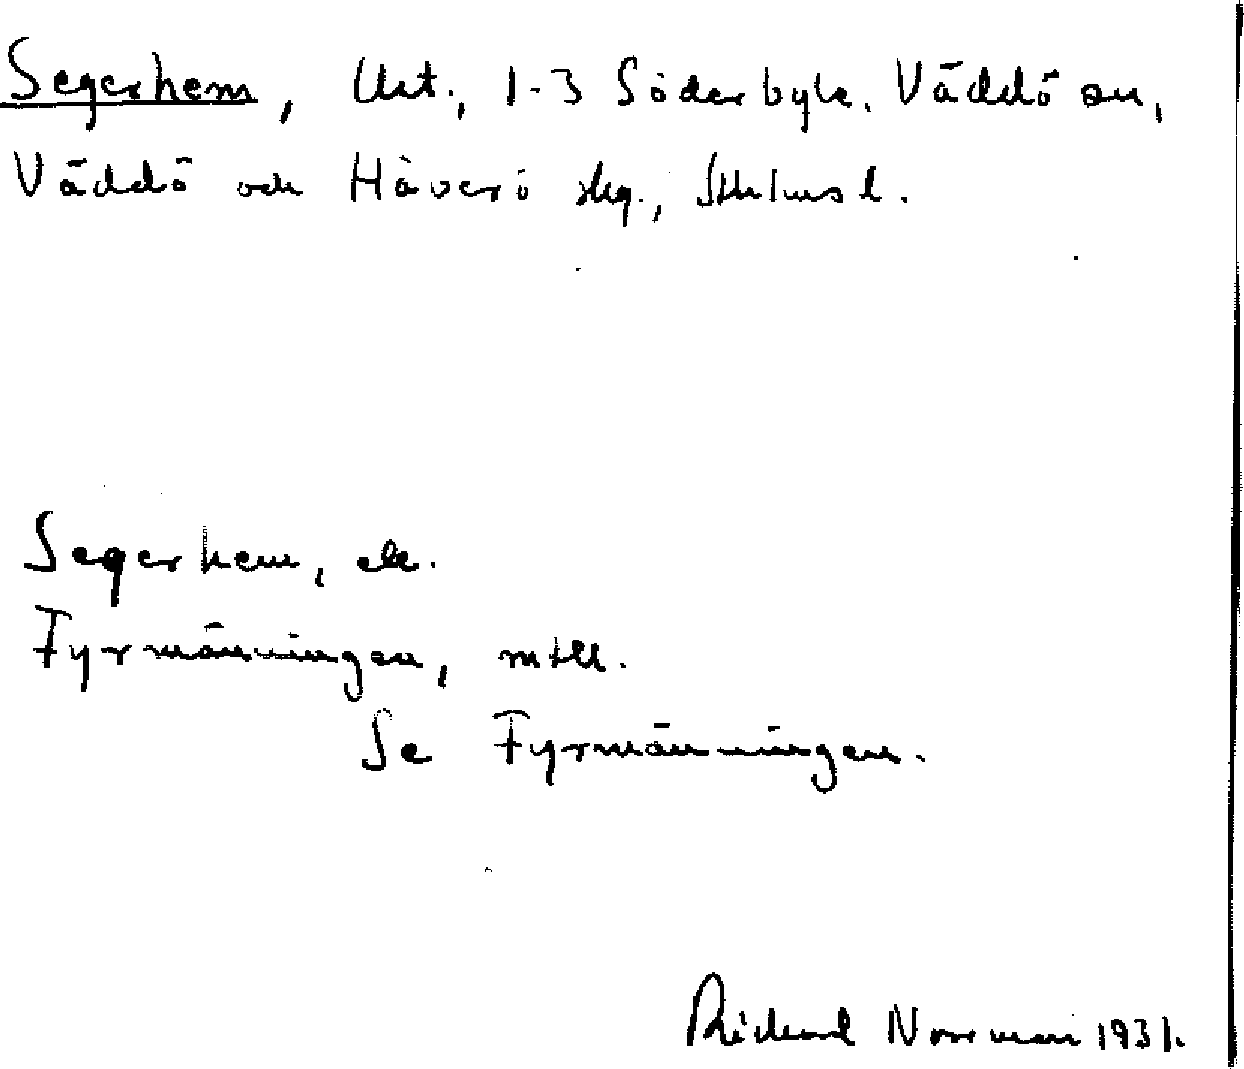 Segerhem, Utt., 1-3 Söderbyle. Väddö sn,
Väddö och Häverö skg., Sthlms l.
Segerhem, el.
Fyrmänningen, mtll.
Se Fyrmänningen.
Richard Norrman 1931.